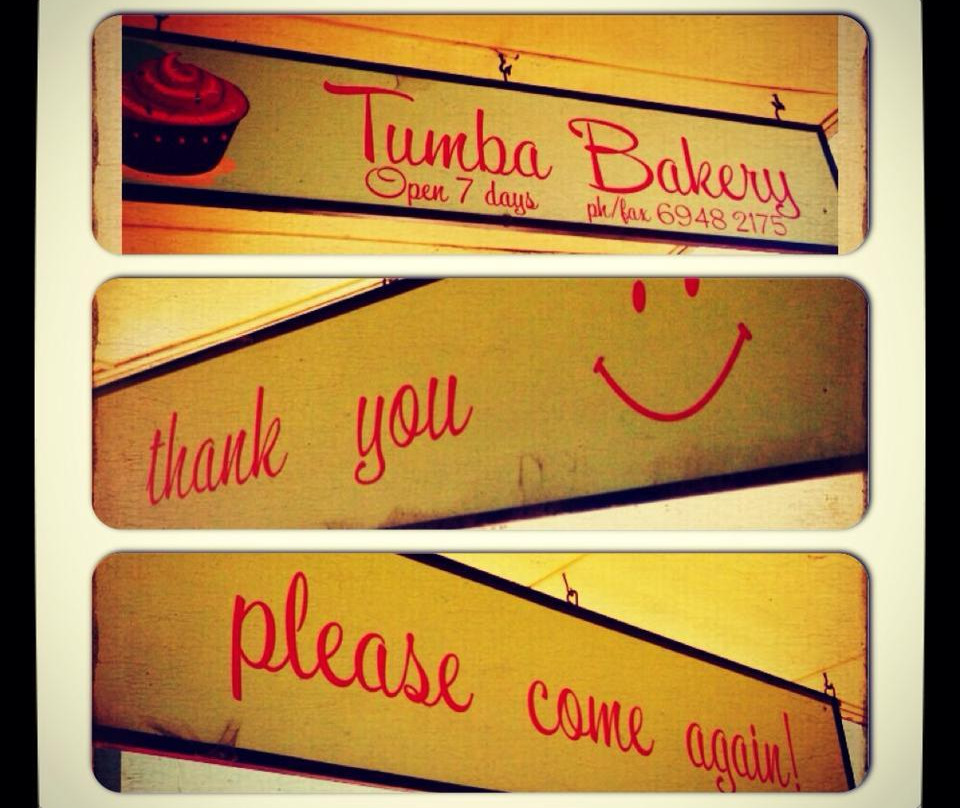 Tumba Bakery
Open 7 days ph/fax 6948 2175
thank you
please come again!